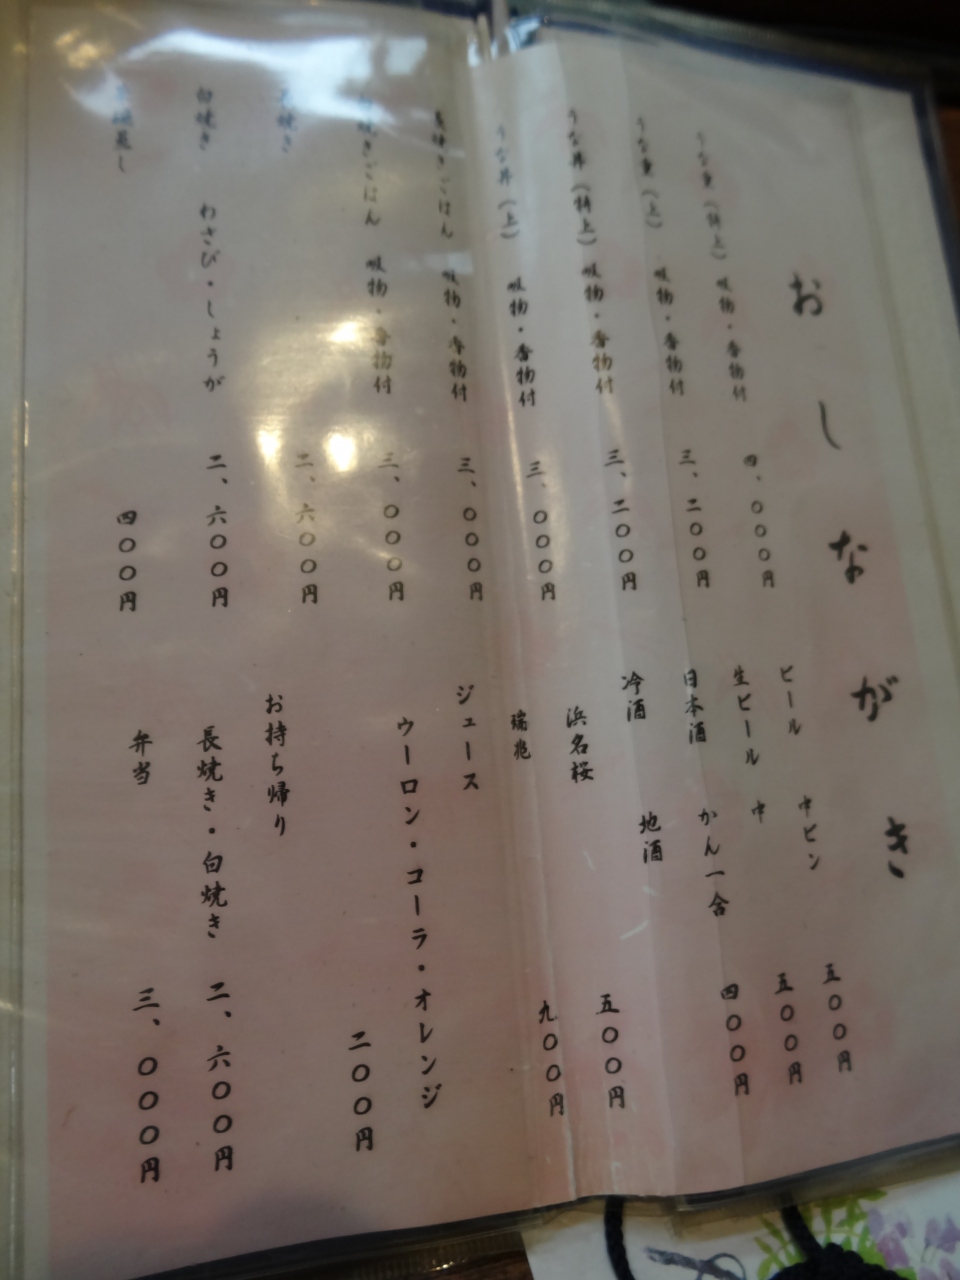 おしながき
うな重（特上） 吸物・香物付 四、〇〇〇円
うな重（上） 吸物・香物付 三、二〇〇円
うな丼（特上） 吸物・香物付 三、二〇〇円
うな丼（上） 吸物・香物付 三、〇〇〇円
長焼きごはん 吸物・香物付 三、〇〇〇円
白焼きごはん 吸物・香物付 三、〇〇〇円
長焼き 二、六〇〇円
白焼き わさび・しょうが 二、六〇〇円
蒸し 四〇〇円
ビール 中ビン 五〇〇円
生ビール 中 五〇〇円
日本酒 かん一合 四〇〇円
冷酒 地酒
浜名桜 五〇〇円
瑞兆 九〇〇円
ジュース
ウーロン・コーラ・オレンジ
二〇〇円
お持ち帰り
長焼き・白焼き 二、六〇〇円
弁当 三、〇〇〇円